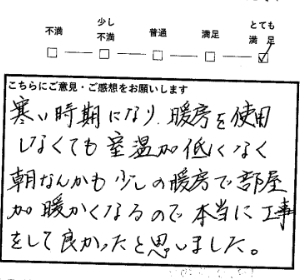 不満 少し不満 普通 満足 とても満足
□ □ □ □ ☑
こちらにご意見・ご感想をお願いします
寒い時期になり、暖房を使用
しなくても室温が低くなく
朝なんかも少しの暖房で部屋
が暖かくなるので本当に工事
をして良かったと思いました。